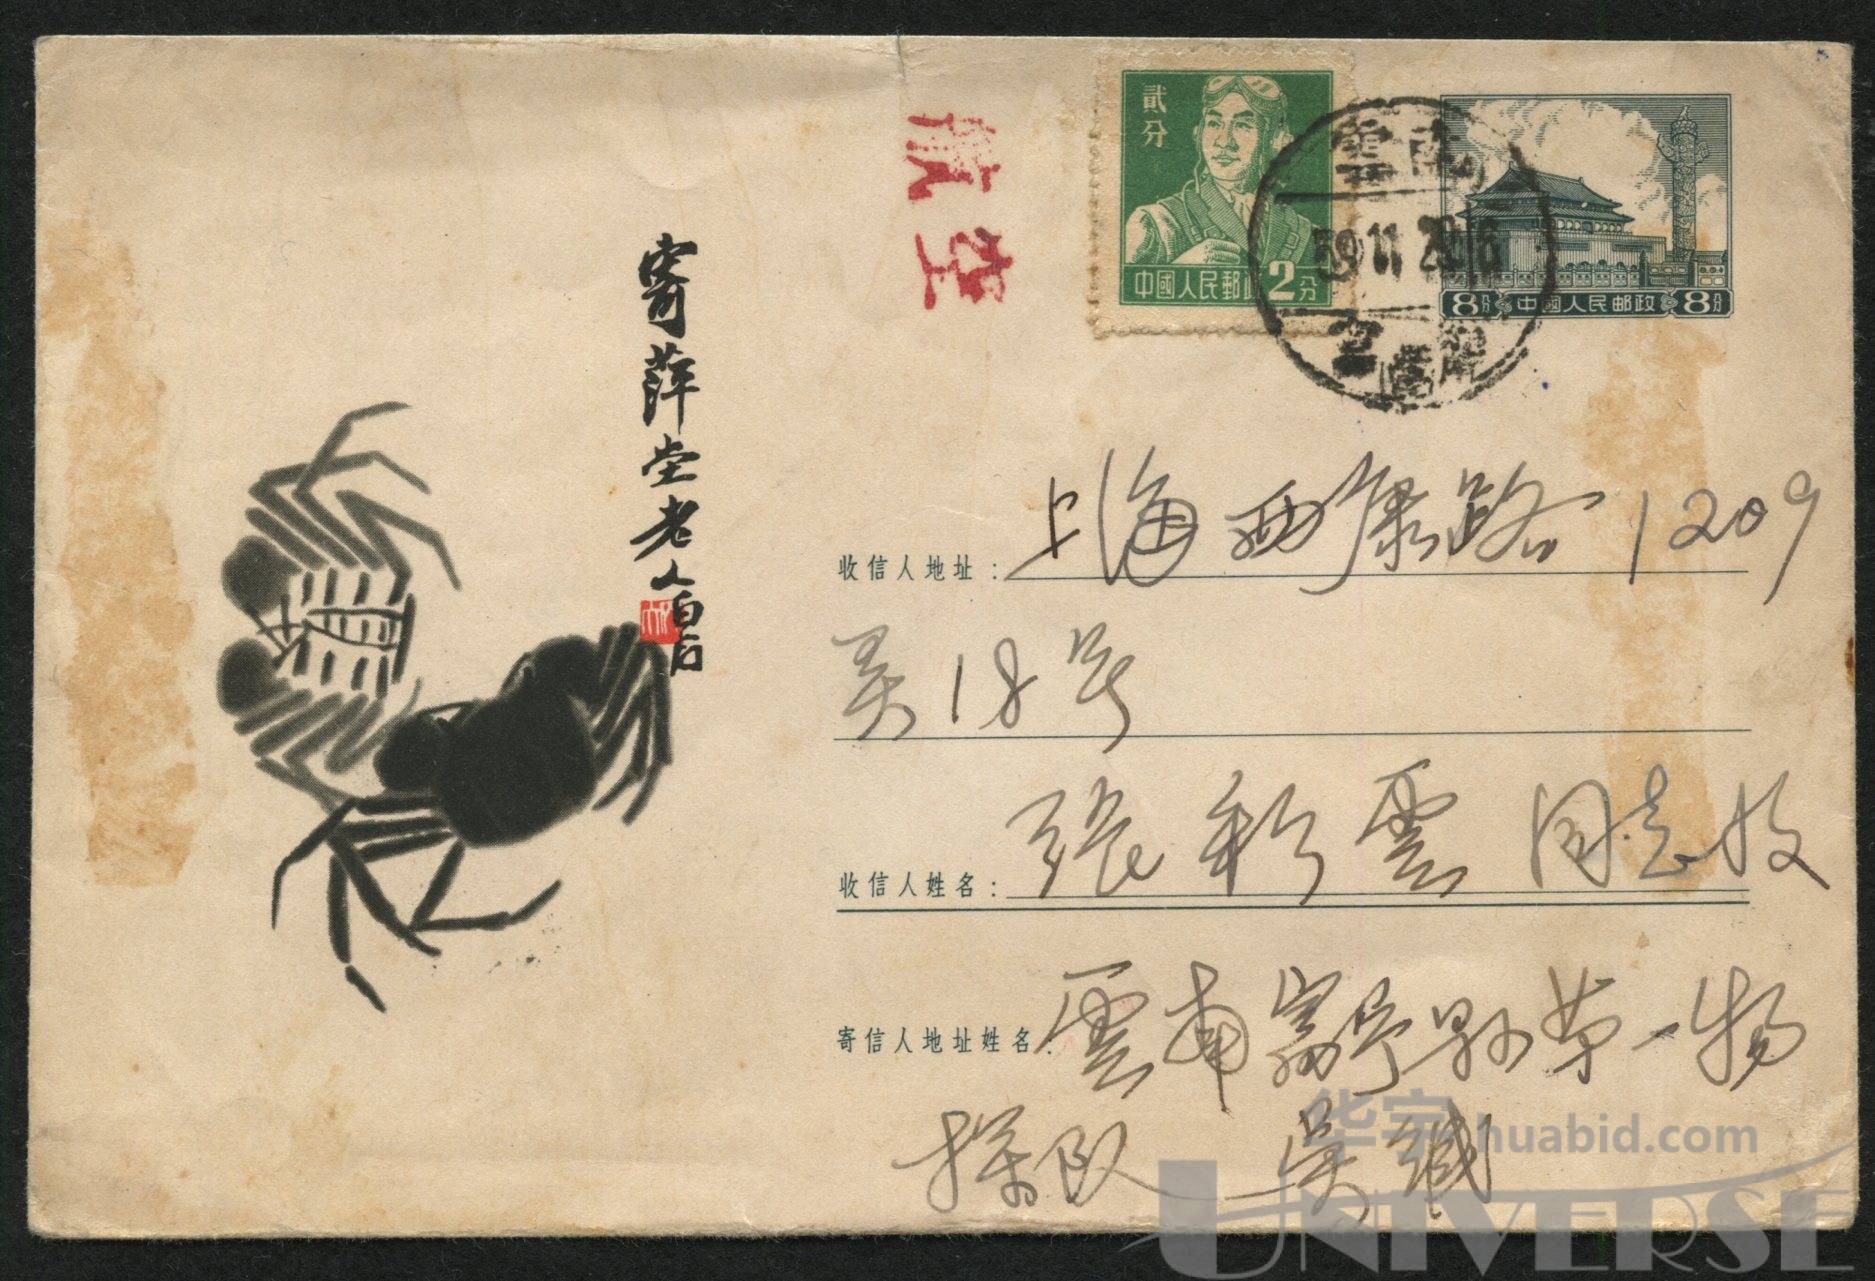 寄萍堂老人白石
航空
貳分
中國人民郵政 2分
雲南
59.11.2
8分 中國人民邮政 8分
收信人地址： 上海西康路 1209
弄18号
收信人姓名： 張彩雲 同志收
寄信人地址姓名： 雲南富宁县第一物
探队 吳诚
华宇 huabid.com
UNIVERSE